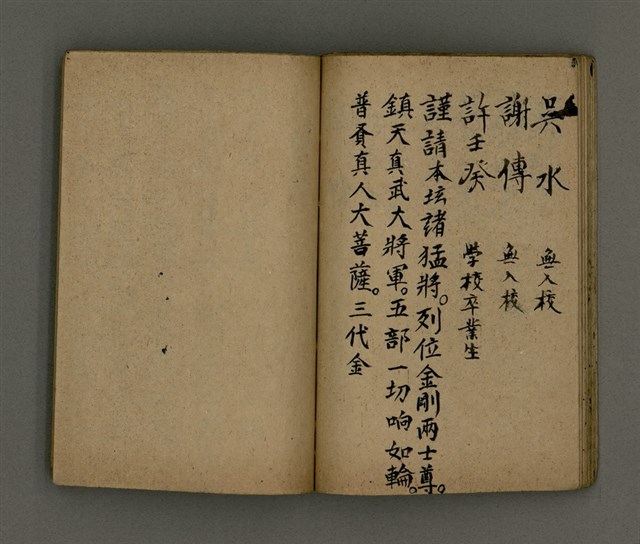 吳水 無入校
謝傳 無入校
許壬癸 學校卒業生
謹請本坛諸猛將。列位金剛兩士尊。
鎮天真武大將軍。五部一切响如輪。
普賡真人大菩薩。三代金